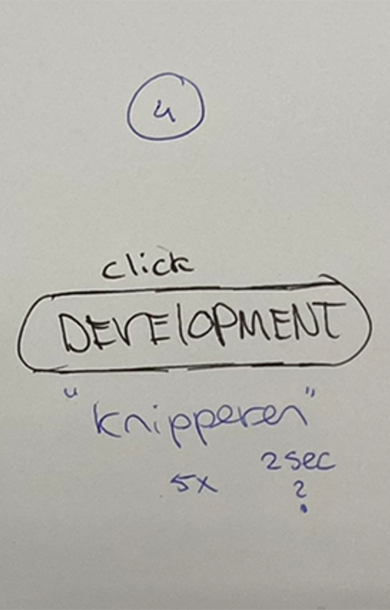 4
click
DEVELOPMENT
"knipperen"
5x 2sec
?